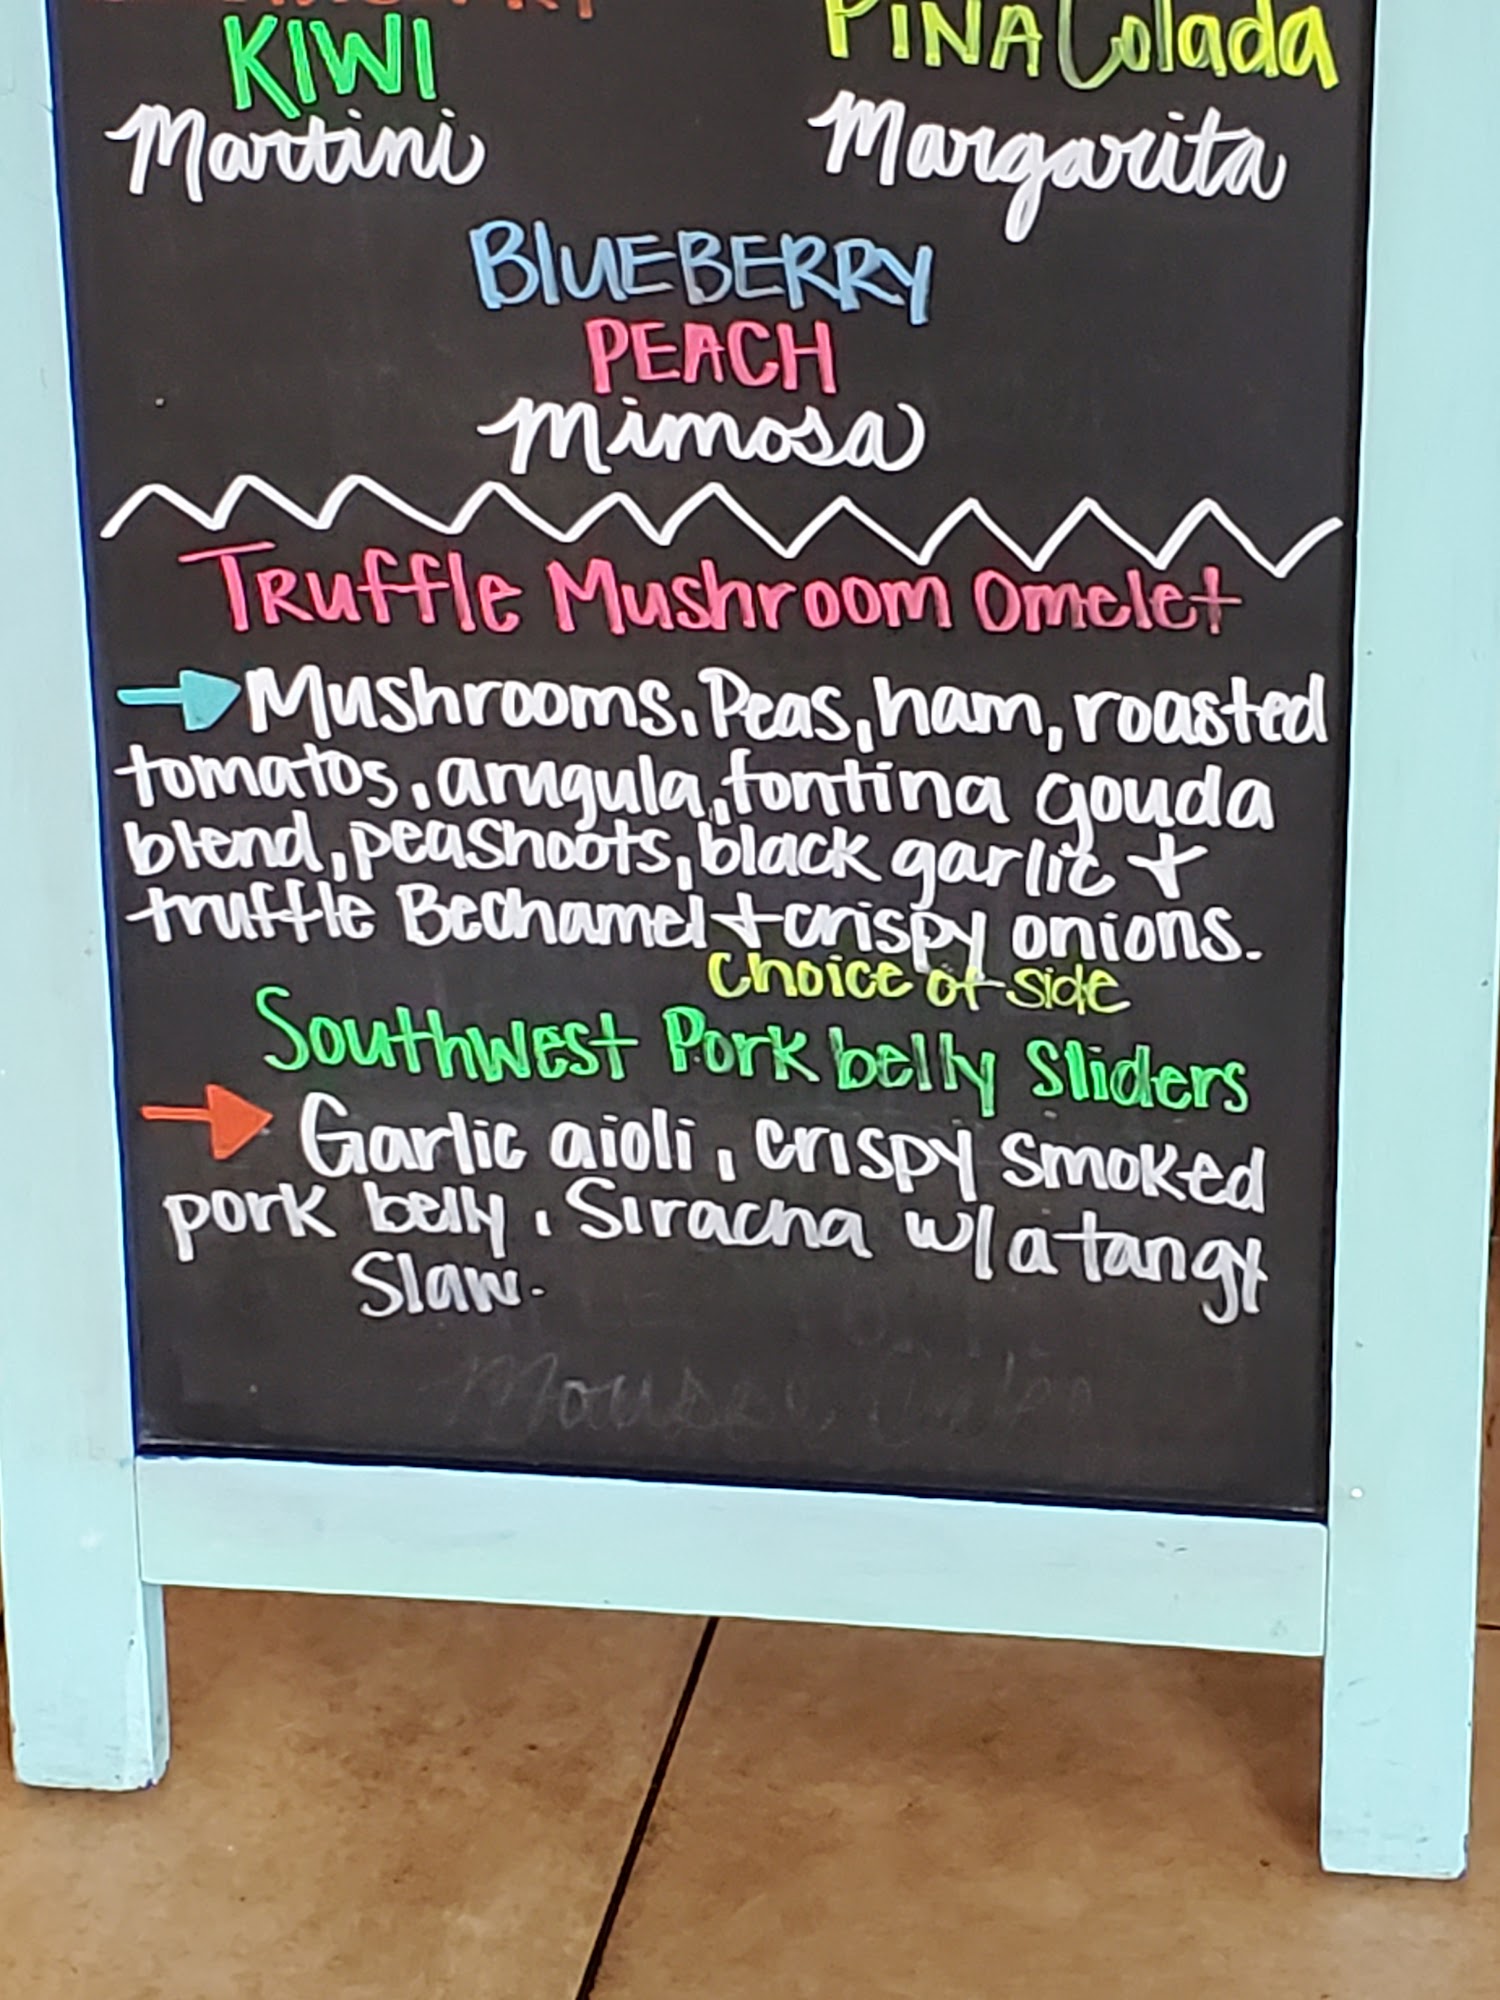 KIWI
Martini
PINA Colada
Margarita
BLUEBERRY
PEACH
Mimosa
Truffle Mushroom Omelet
Mushrooms, Peas, ham, roasted
tomatos, arugula, fontina gouda
blend, peashoots, black garlic +
truffle Bechamel + crispy onions.
Choice of side
Southwest Pork belly Sliders
Garlic aioli, crispy smoked
pork belly, Siracha w/ a tangy
Slaw.